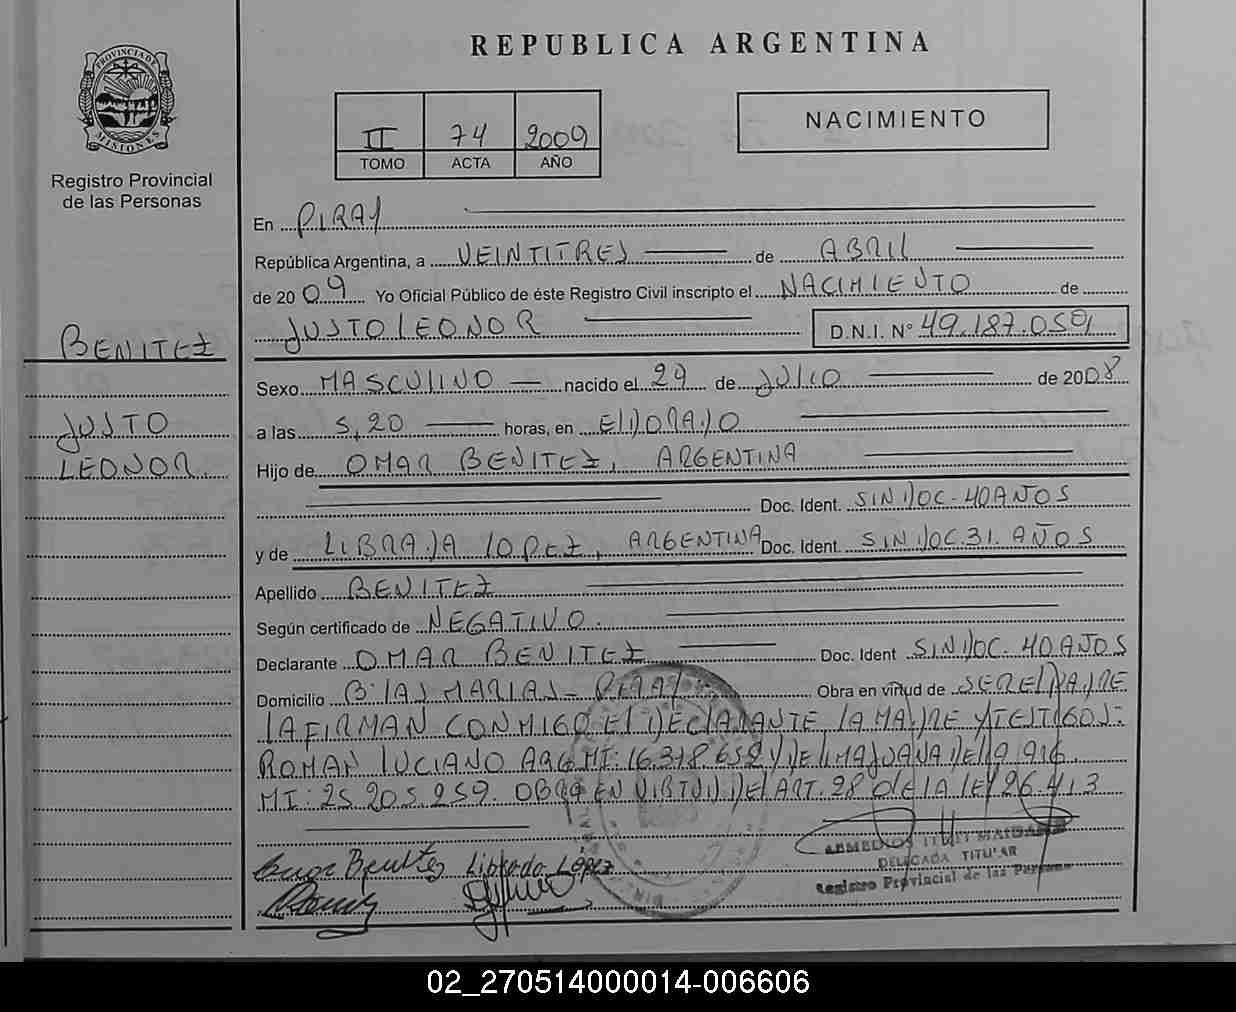 PROVINCIA DE
MISIONES
Registro Provincial
de las Personas
BENITEZ
JUSTO
LEONOR.
REPUBLICA ARGENTINA
II 74 2009
TOMO ACTA AÑO
NACIMIENTO
En PIRAY
República Argentina, a VEINTITRES de ABRIL
de 2009 Yo Oficial Público de éste Registro Civil inscripto el NACIMIENTO de
JUSTO LEONOR D.N.I. N° 49.187.050
Sexo MASCULINO nacido el 29 de JULIO de 2008
a las 5,20 horas, en ELDORADO
Hijo de OMAR BENITEZ, ARGENTINA
Doc. Ident. SIN DOC. 40 AÑOS
y de LIBRADA LOPEZ, ARGENTINA Doc. Ident. SIN DOC. 31. AÑOS
Apellido BENITEZ
Según certificado de NEGATIVO.
Declarante OMAR BENITEZ Doc. Ident SIN DOC. 40 AÑOS
Domicilio Bº LAS MARIAS - PIRAY Obra en virtud de SER EL PADRE
LA FIRMAN CONMIGO EL DECLARANTE, LA MADRE Y TESTIGOS:
ROMAN LUCIANO ARG. MI: 16.378.652 Y DE
MI: 25.205.259. OBRA EN VIRTUD DEL ART. 28 DE LA LEY 26.413
Omar Benitez Librada López
DELEGADA TITULAR
Registro Provincial de las Personas
02_270514000014-006606